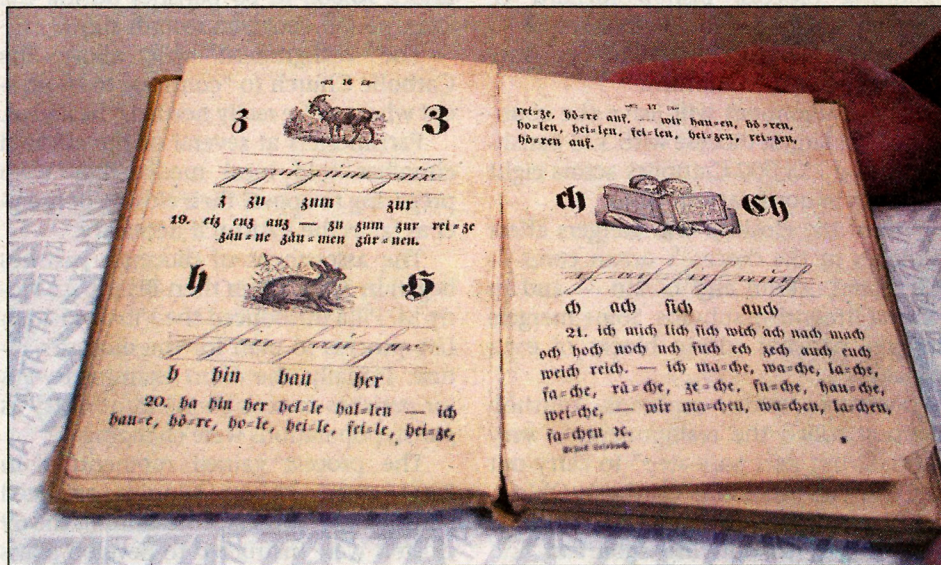 16
z Z
z zu zum zur
z zu zum zur
19. eiz euz auz — zu zum zur rei=ze
zäu=ne zäu=men zür=nen.
h H
h hin hau her
h hin hau her
20. ha hin her hel=le hal=len — ich
hau=e, hö=re, ho=le, hei=le, fei=le, hei=ze,
17
rei=ze, hö=re auf. — wir hau=en, hö=ren,
ho=len, hei=len, fei=len, hei=zen, rei=zen,
hö=ren auf.
ch Ch
ch ach sich auch
ch ach sich auch
21. ich mich lich sich wich ach nach mach
och hoch noch uch such ech zech auch euch
weich reich. — ich ma=che, wa=che, la=che,
fa=che, rä=che, ze=che, su=che, hau=che,
wei=che, — wir ma=chen, wa=chen, la=chen,
fa=chen ꝛc.
Erstes Lesebuch.